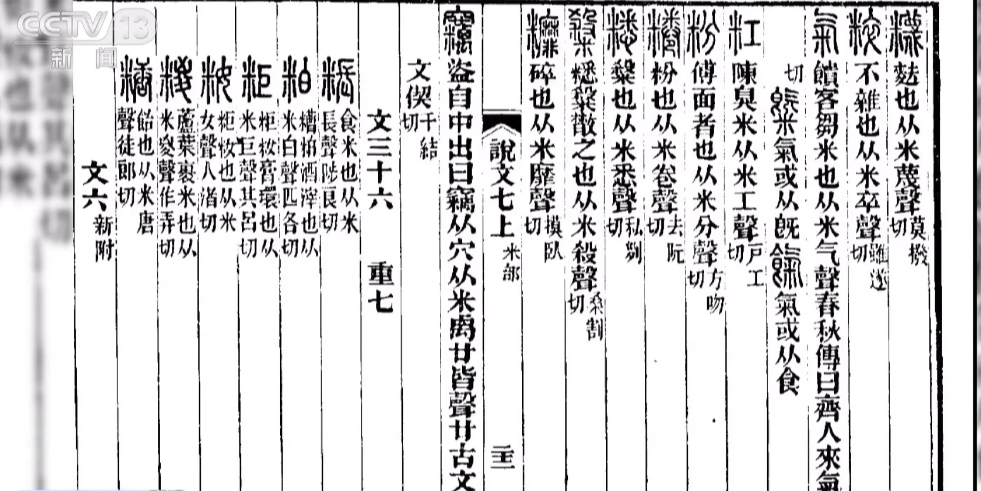 CCTV 13
新闻
𥽘麩也从米蔑聲莫撥切
粹不雜也从米卒聲雖遂切
氣饋客芻米也从米气聲春秋傳曰齊人來氣
切 㮣氣或从既 餼氣或从食
粠陳臭米从米工聲戶工切
粉傅面者也从米分聲方吻切
粉也从米卷聲去阮切
糳也从米悉聲私列切
糂糳㪚之也从米殺聲桑割切
糜碎也从米靡聲摸臥切
說文七上 米部
竊盜自中出曰竊从穴从米禼廿皆聲廿古文
文偰千結切
文三十六 重七
粻食米也从米長聲陟良切
粕糟粕酒滓也从米白聲匹各切
粔粔籹膏環也从米巨聲其呂切
籹粔籹也从米女聲人渚切
糉蘆葉裹米也从米㚇聲作弄切
糖飴也从米唐聲徒郎切
文六 新附